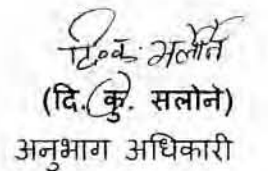 (दि. कु. सलोने)
अनुभाग अधिकारी